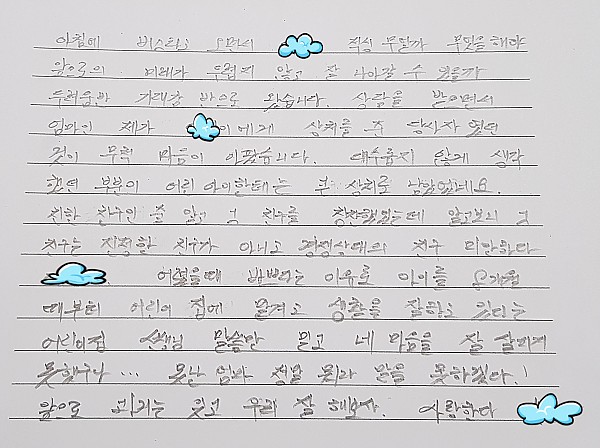 아침에 버스타고 오면서 적성 무얼까 무엇을 해야
앞으로의 미래가 두렵지 않고 잘 나아갈 수 있을까
두려움반 기대감 반으로 왔습니다. 상담을 받으면서
엄마인 제가 이에게 상처를 준 당사자 였던
것이 무척 마음이 아팠습니다. 대수롭지 않게 생각
했던 부분이 어린 아이한테는 큰 상처로 남았었네요.
친한 친구인 줄 알고 그 친구를 칭찬했었는데 알고보니 그
친구는 진정한 친구가 아니고 경쟁상대의 친구 미안하다
어렸을때 바쁘다는 이유로 아이를 8개월
때부터 어린이 집에 맡겨고 생활을 잘하고 있다는
어린이집 선생님 말씀만 믿고 네 마음을 잘 살피지
못했구나 ... 못난 엄마 정말 뭐라 말을 못하겠다.!
앞으로 과거는 잊고 우리 잘 해보자. 사랑한다